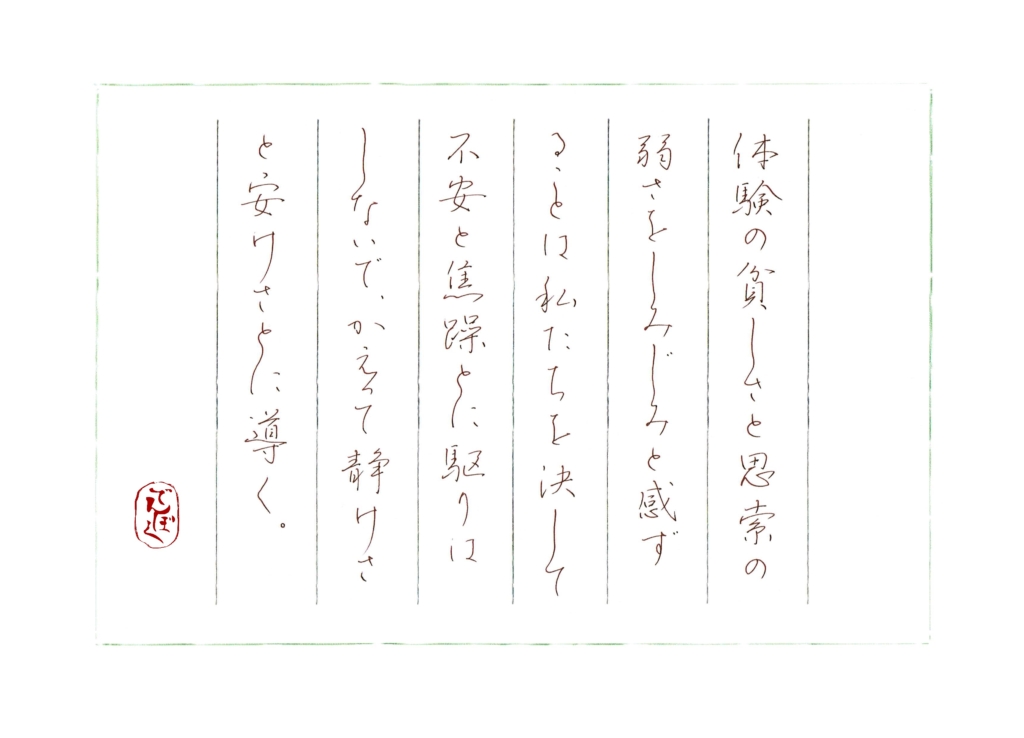 体験の貧しさと思索の
弱さをしみじみと感ず
ることは私たちを決して
不安と焦躁とに駆りは
しないで、かえって静けさ
と安けさとに導く。
でんぼ